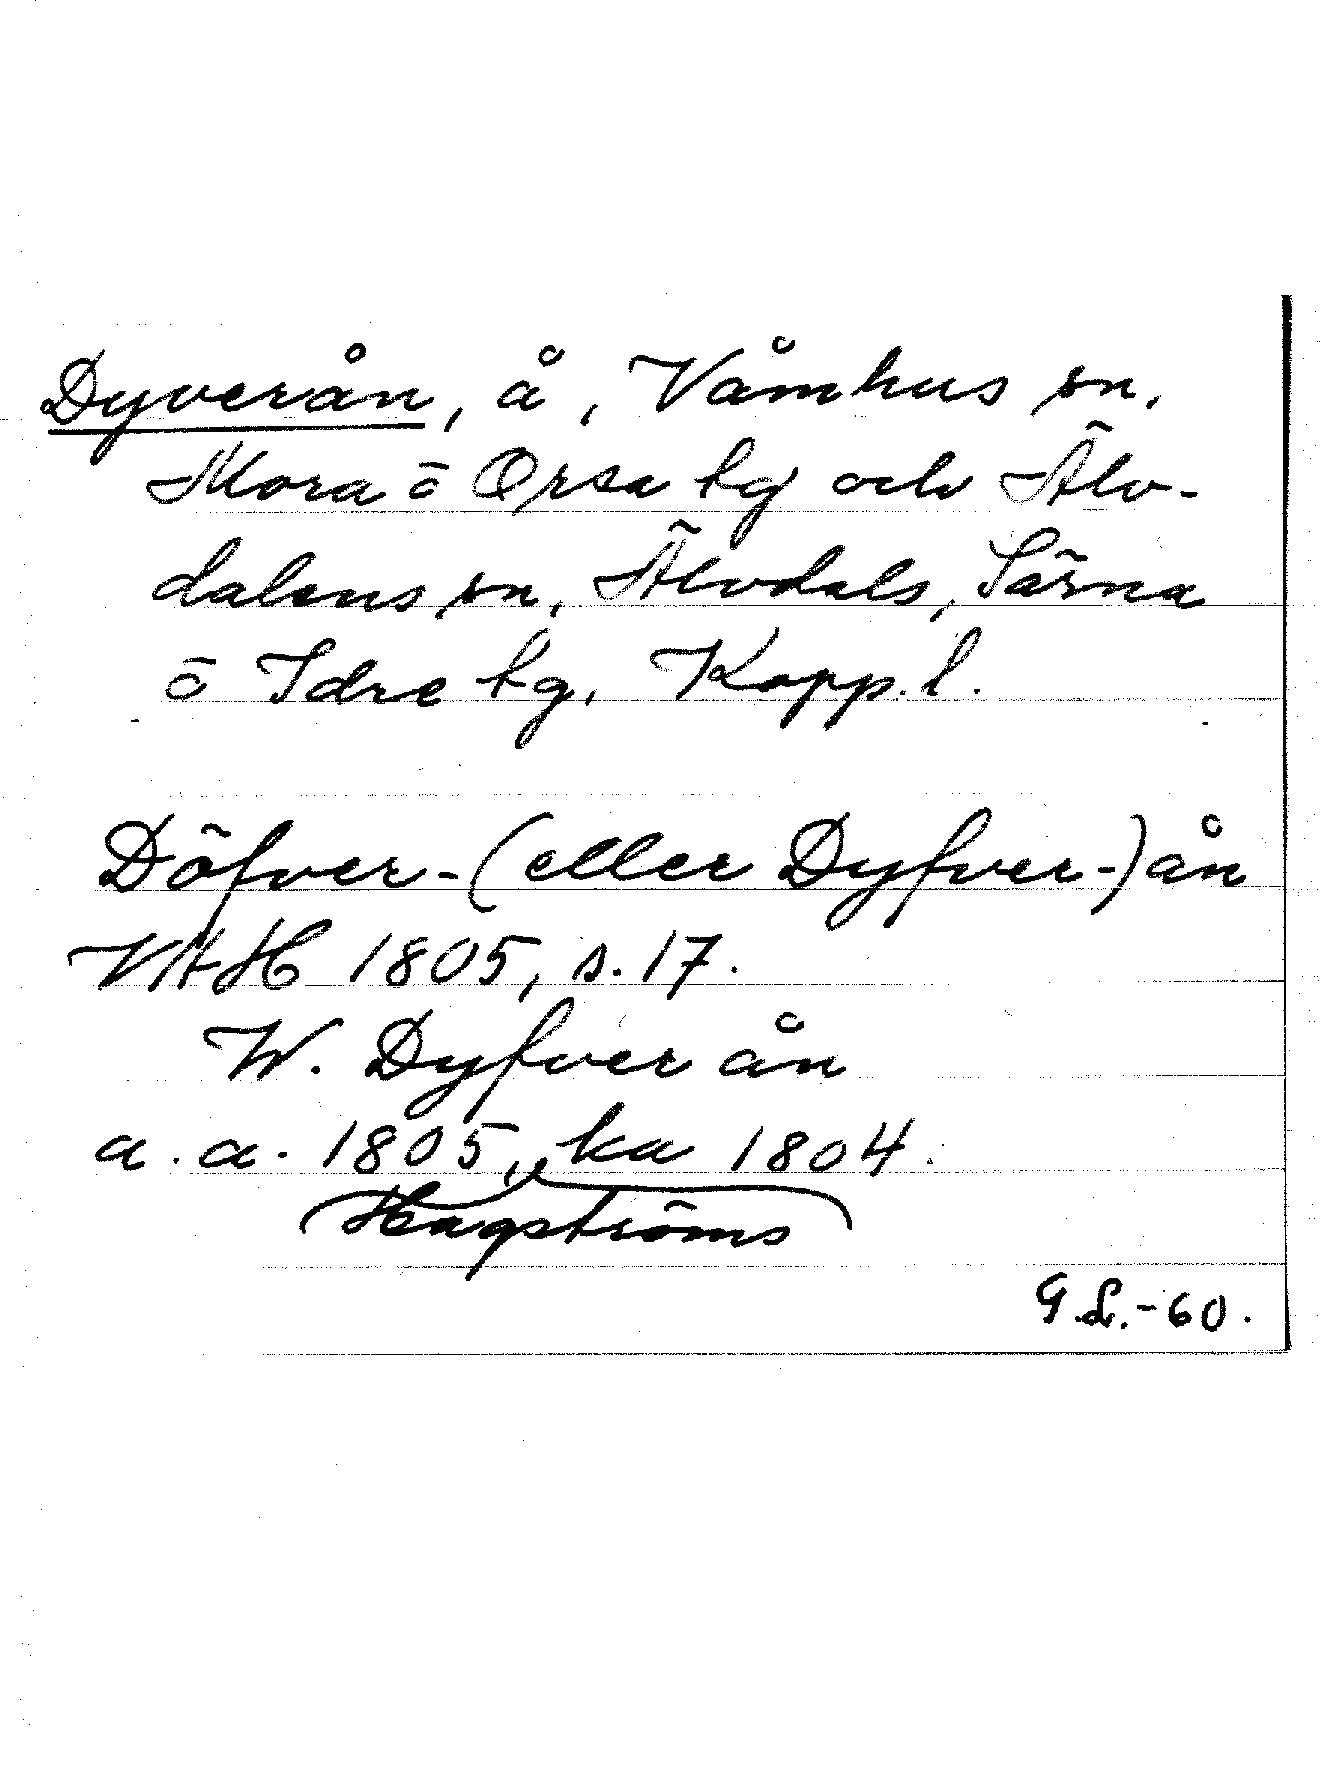 Dyverån, å, Våmhus sn,
Mora ō Orsa tg och Älv-
dalens sn, Älvdals, Särna
ō Idre tg, Kopp. l.
Döfver-(eller Dyfver-)ån
VAH 1805, s. 17.
W. Dyfver ån
a. a. 1805, ka 1804.
Hagströms
G.L.-60.